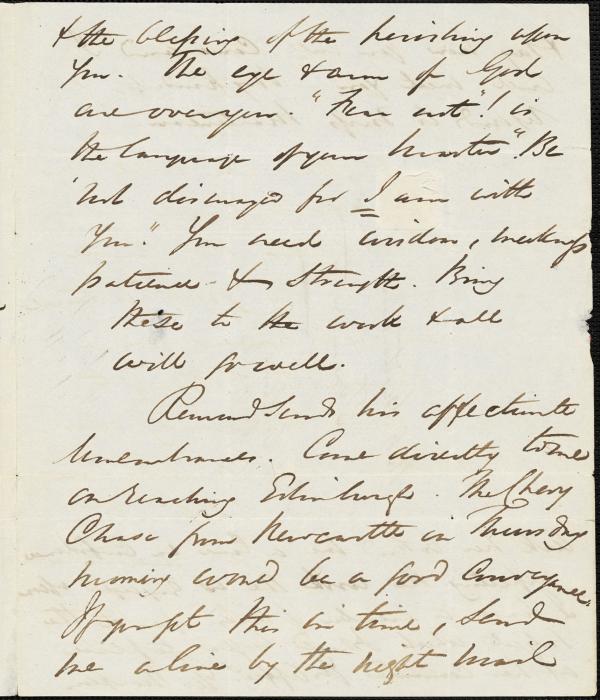 & the blessing of the perishing upon
you. The eye & arm of God
are over you. "Fear not"! is
the language of your Master. "Be
not dismayed for I am with
you." You need wisdom, meekness
patience & strength. Bring
these to the work & all
will go well.
Remond sends his affectionate
remembrances. Come directly to me
on reaching Edinburgh. The Chevy
Chase from Newcastle on Thursday
morning would be a good conveyance.
If you get this in time, send
me a line by the night mail